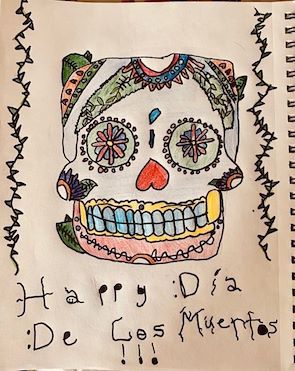 Happy Día
De Los Muertos
!!!